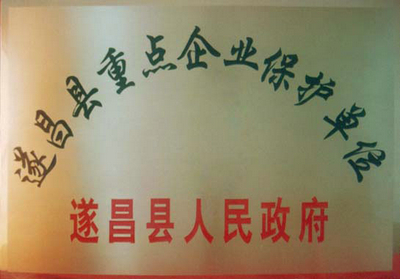 遂昌县重点企业保护单位
遂昌县人民政府